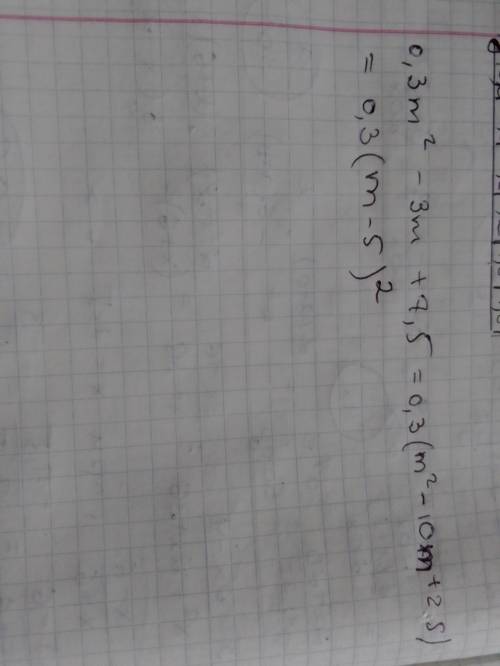 0,3m² - 3m + 7,5 = 0,3(m² - 10m + 25)
= 0,3(m - 5)²